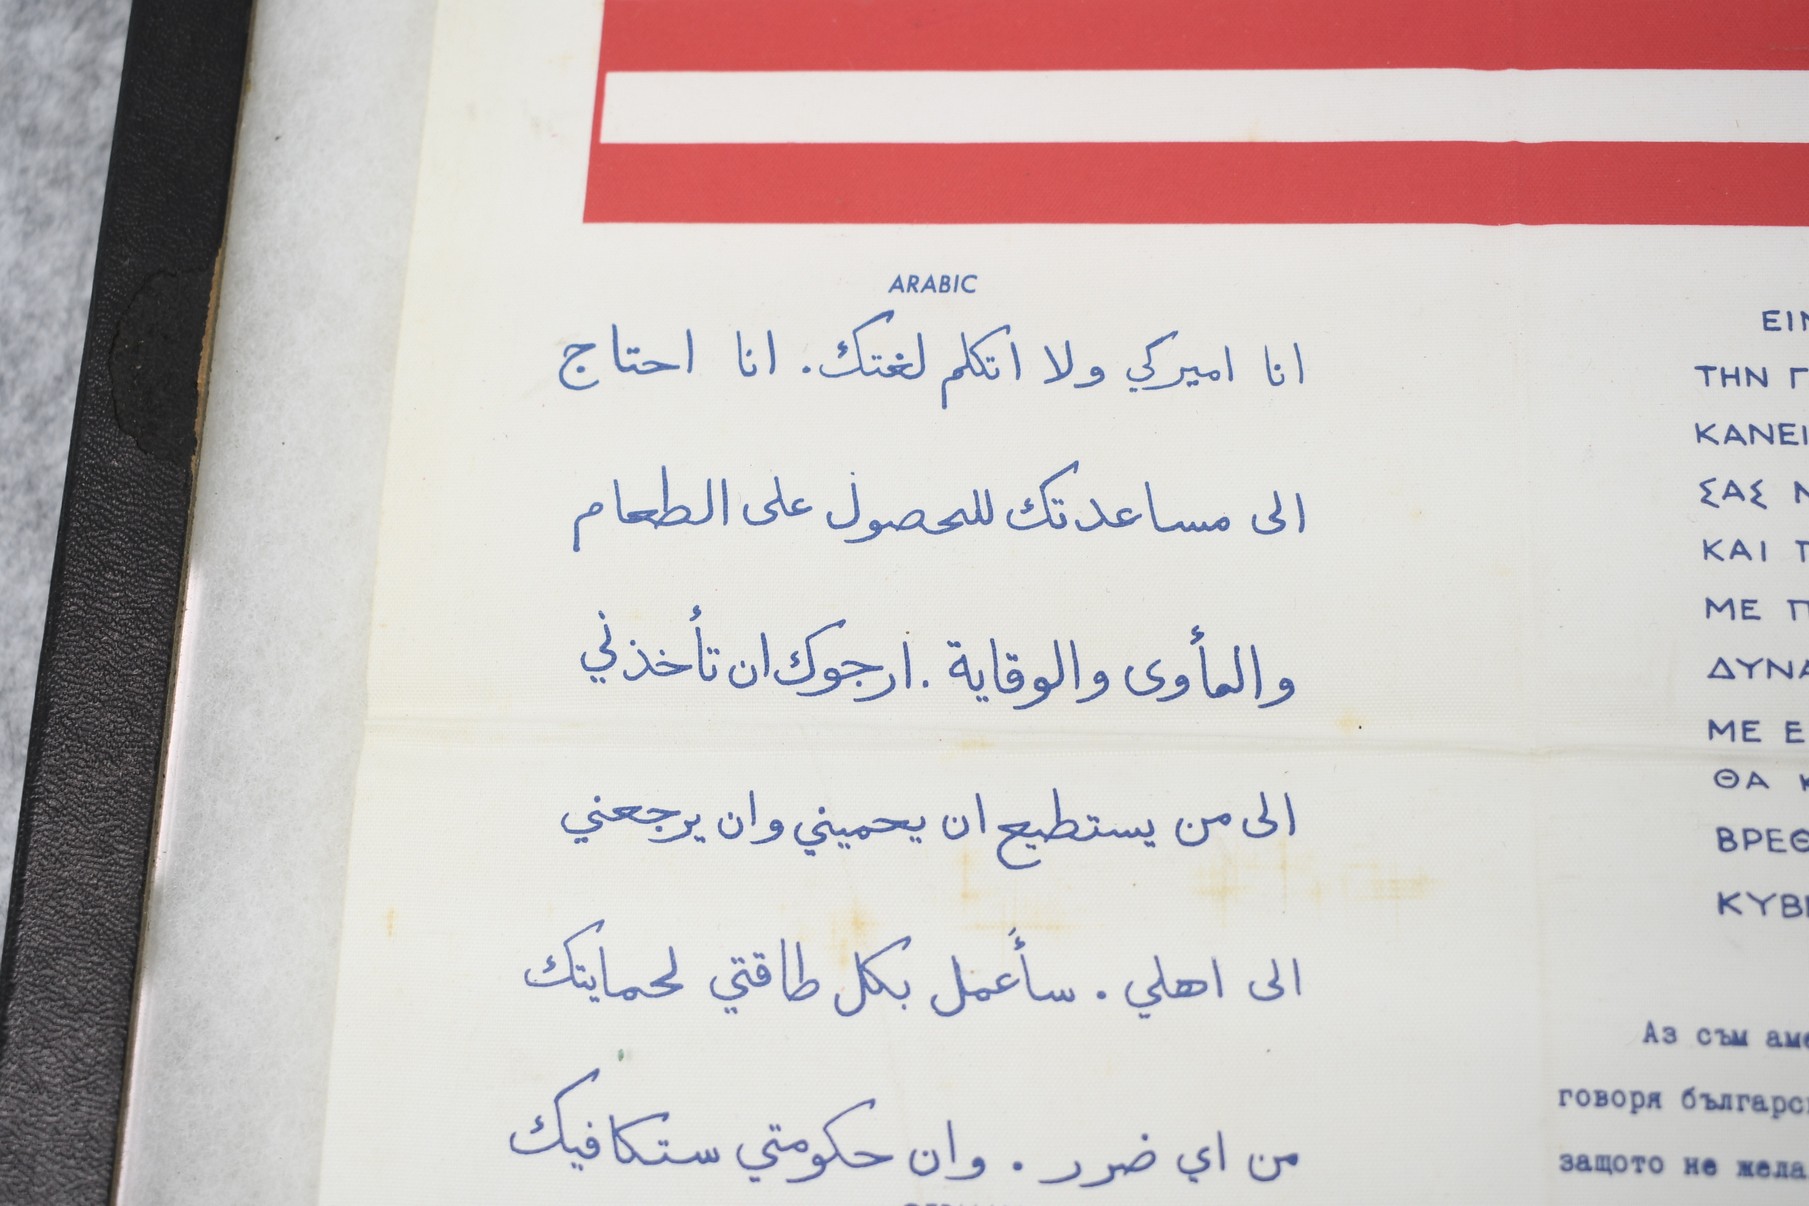 ARABIC
انا اميركي ولا اتكلم لغتك. انا احتاج
الى مساعدتك للحصول على الطعام
والمأوى والوقاية. ارجوك ان تأخذني
الى من يستطيع ان يحميني وان يرجعني
الى اهلي. سأعمل بكل طاقتي لحمايتك
من اي ضرر. وان حكومتي ستكافيك
ΤΗΝ
ΚΑΝΕΙ
ΣΑΣ
ΚΑΙ
ΜΕ
ΔΥΝΑ
ΜΕ Ε
ΘΑ
ΒΡΕΘ
ΚΥΒ
Аз съм аме
говоря българс
защото не жела